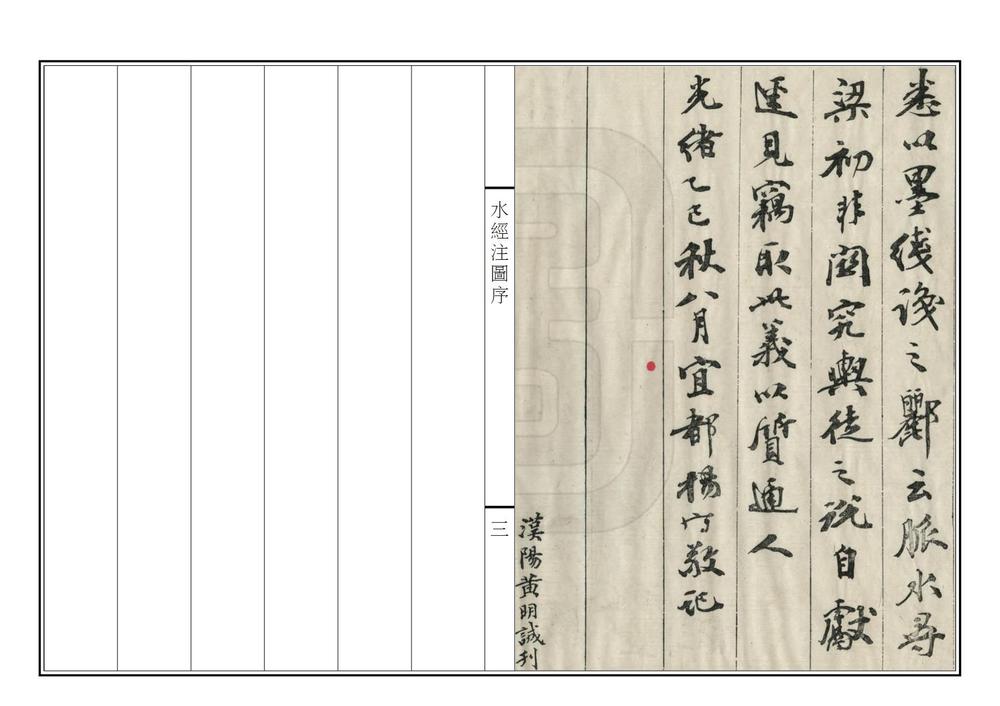 悉以墨綫識之酈云脈水尋
梁初非關究輿徒之說自獻
逕見竊取此義以質通人
光緒乙巳秋八月宜都楊守敬記
漢陽黃明誠刊
水經注圖序
三